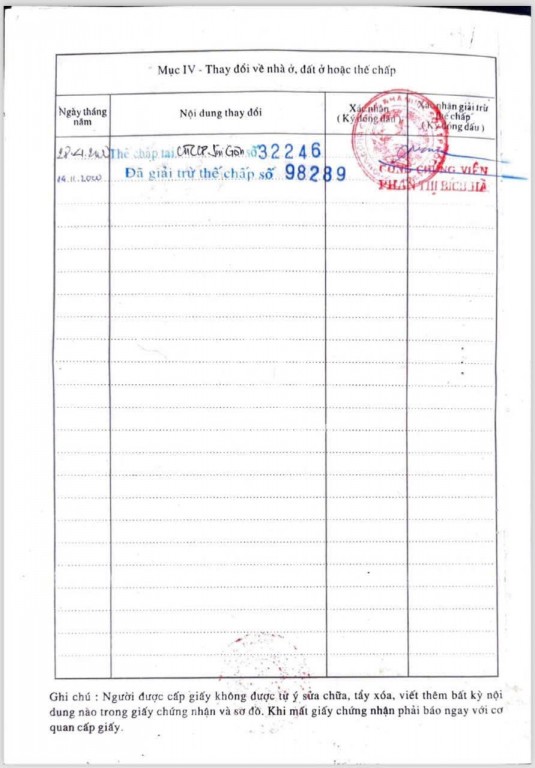 Mục IV - Thay đổi về nhà ở, đất ở hoặc thế chấp
Ngày tháng năm
Nội dung thay đổi
Xác nhận
( Ký đóng dấu )
Xác nhận giải trừ
thế chấp
( Ký đóng dấu )
Thế chấp tại số 32246
14.11.2000 Đã giải trừ thế chấp số 98289
CÔNG CHỨNG VIÊN
PHAN THỊ BÍCH HÀ
Ghi chú : Người được cấp giấy không được tự ý sửa chữa, tẩy xóa, viết thêm bất kỳ nội
dung nào trong giấy chứng nhận và sơ đồ. Khi mất giấy chứng nhận phải báo ngay với cơ
quan cấp giấy.